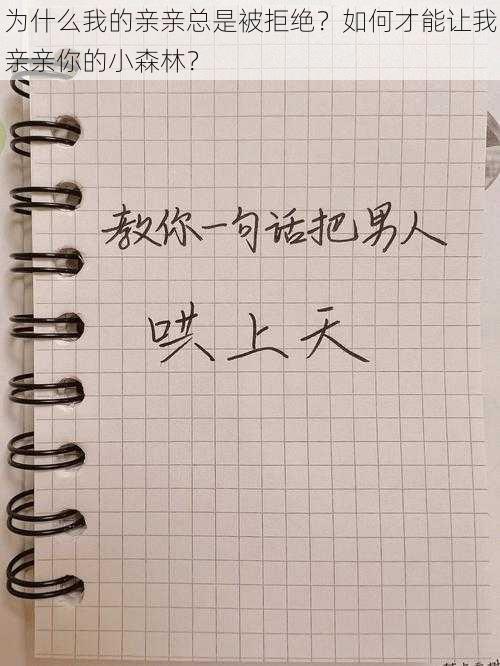 为什么我的亲亲总是被拒绝？如何才能让我
亲亲你的小森林？
教你一句话把男人
哄上天